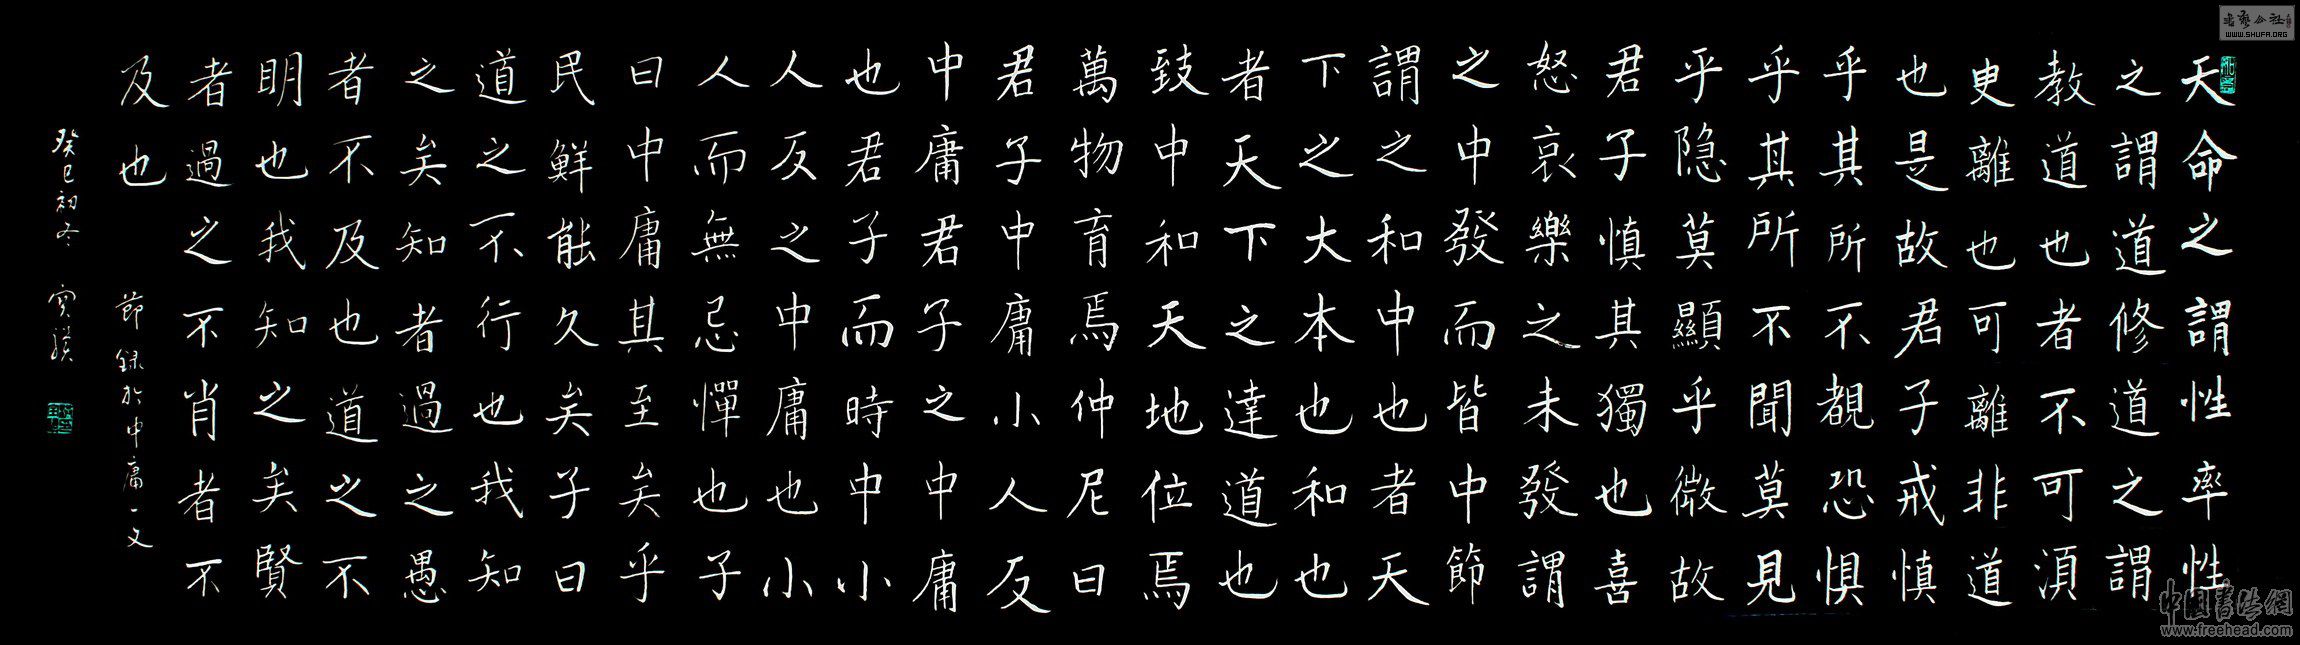 天命之謂性率性
之謂道修道之謂
教道也者不可湏
臾離也可離非道
也是故君子戒慎
乎其所不覩恐惧
乎其所不聞莫見
乎隐莫顯乎微故
君子慎其獨也喜
怒哀樂之未發謂
之中發而皆中節
謂之和中也者天
下之大本也和也
者天下之達道也
致中和天地位焉
萬物育焉仲尼曰
君子中庸小人反
中庸君子之中庸
也君子而時中小
人反之中庸也小
人而無忌憚也子
曰中庸其至矣乎
民鮮能久矣子曰
道之不行也我知
之矣知者過之愚
者不及也道之不
明也我知之矣賢
者過之不肖者不
及也 節録於中庸一文
癸巳初冬
WWW.SHUFA.ORG
中國書法網
www.freehead.com